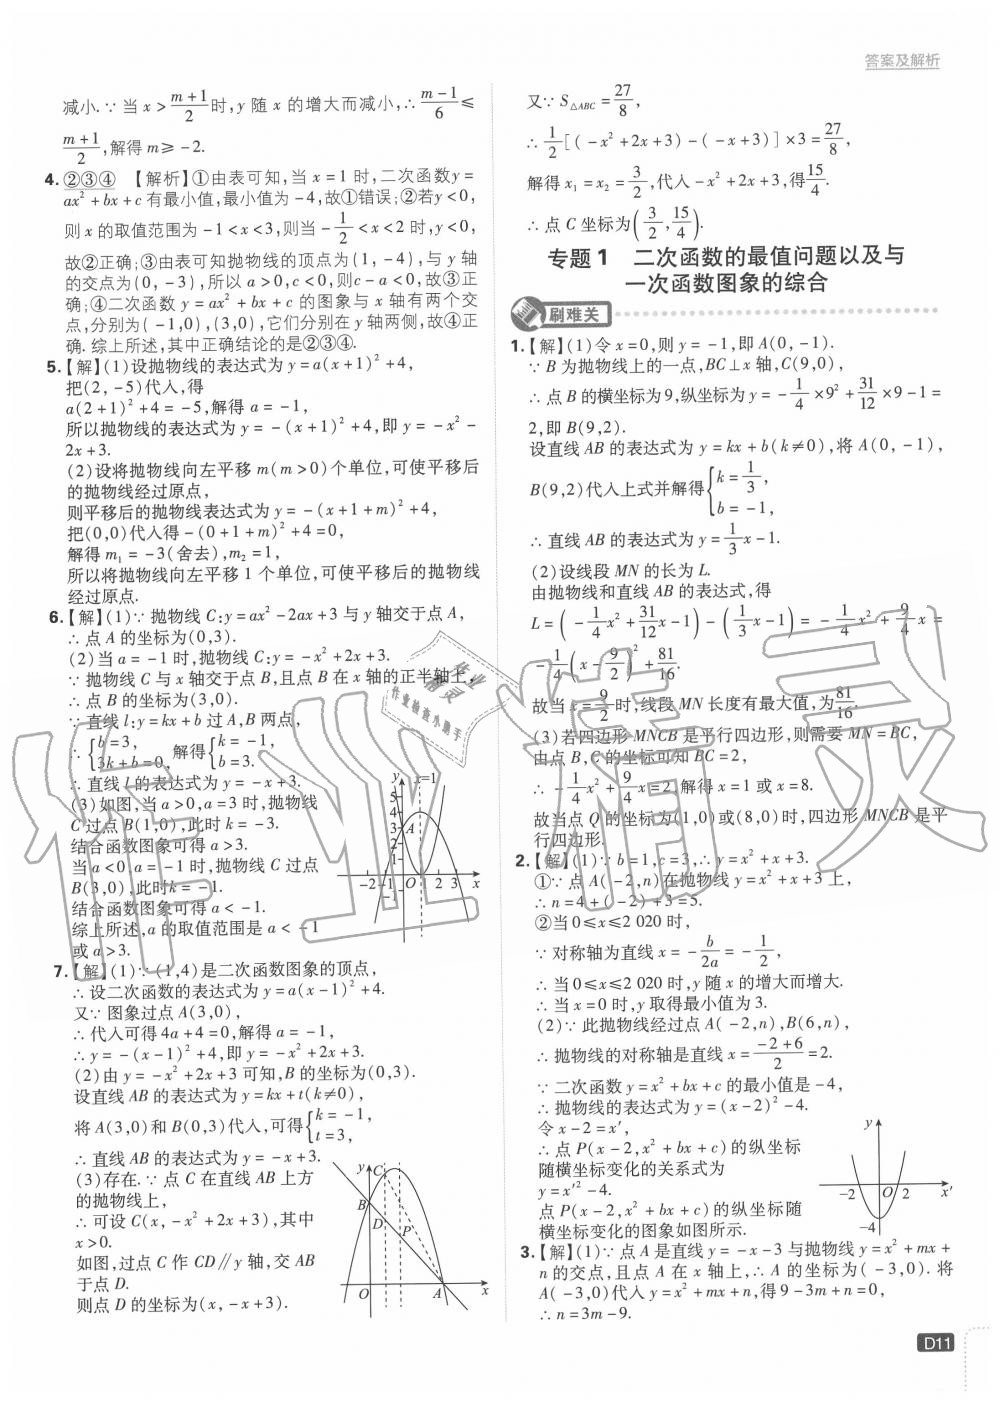 答案及解析
减小.∵当 x>\frac{m+1}{2}时,y 随 x 的增大而减小,∴\frac{m-1}{6}≤
\frac{m+1}{2},解得 m≥-2.
4.②③④ 【解析】①由表可知,当 x=1 时,二次函数 y=
ax²+bx+c 有最小值,最小值为-4,故①错误;②若 y<0,
则 x 的取值范围为-1<x<3,则当-\frac{1}{2}<x<2 时,y<0,
故②正确;③由表可知抛物线的顶点为(1,-4),与 y 轴
的交点为(0,-3),所以 a>0,c<0,则 c-a<0,故③正
确;④二次函数 y=ax²+bx+c 的图象与 x 轴有两个交
点,分别为(-1,0),(3,0),它们分别在 y 轴两侧,故④正
确.综上所述,其中正确结论的是②③④.
5.【解】(1)设抛物线的表达式为 y=a(x+1)²+4,
把(2,-5)代入,得
a(2+1)²+4=-5,解得 a=-1,
所以抛物线的表达式为 y=-(x+1)²+4,即 y=-x²-
2x+3.
(2)设将抛物线向左平移 m(m>0)个单位,可使平移后
的抛物线经过原点,
则平移后的抛物线表达式为 y=-(x+1+m)²+4,
把(0,0)代入得-(0+1+m)²+4=0,
解得 m₁=-3(舍去),m₂=1,
所以将抛物线向左平移 1 个单位,可使平移后的抛物线
经过原点.
6.【解】(1)∵抛物线 C:y=ax²-2ax+3 与 y 轴交于点 A,
∴点 A 的坐标为(0,3).
(2)当 a=-1 时,抛物线 C:y=-x²+2x+3.
∵抛物线 C 与 x 轴交于点 B,且点 B 在 x 轴的正半轴上,
∴点 B 的坐标为(3,0).
∵直线 l:y=kx+b 过 A,B 两点,
∴{b=3, 3k+b=0, 解得{k=-1, b=3.
∴直线 l 的表达式为 y=-x+3.
(3)如图,当 a>0,a=3 时,抛物线
C 过点 B(1,0),此时 k=-3.
结合函数图象可得 a>3.
当 a<0,a=-1 时,抛物线 C 过点
B(3,0),此时 k=-1.
结合函数图象可得 a<-1.
综上所述,a 的取值范围是 a<-1
或 a>3.
y x=1
5
4
3 A
2
1
-2 -1 O 1 2 3 x
-1
7.【解】(1)∵(1,4)是二次函数图象的顶点,
∴设二次函数的表达式为 y=a(x-1)²+4.
又∵图象过点 A(3,0),
∴代入可得 4a+4=0,解得 a=-1,
∴y=-(x-1)²+4,即 y=-x²+2x+3.
(2)由 y=-x²+2x+3 可知,B 的坐标为(0,3).
设直线 AB 的表达式为 y=kx+t(k≠0),
将 A(3,0)和 B(0,3)代入,可得{k=-1, t=3,
∴直线 AB 的表达式为 y=-x+3.
(3)存在.∵点 C 在直线 AB 上方
的抛物线上,
∴可设 C(x,-x²+2x+3),其中
x>0.
如图,过点 C 作 CD∥y 轴,交 AB
于点 D.
则点 D 的坐标为(x,-x+3).
y C
B
D P
O A x
又∵S△ABC=\frac{27}{8},
∴\frac{1}{2}[(-x²+2x+3)-(-x+3)]×3=\frac{27}{8},
解得 x₁=x₂=\frac{3}{2},代入-x²+2x+3,得\frac{15}{4}.
∴点 C 坐标为(\frac{3}{2},\frac{15}{4}).
专题1 二次函数的最值问题以及与
一次函数图象的综合
刷难关
1.【解】(1)令 x=0,则 y=-1,即 A(0,-1).
∵B 为抛物线上的一点,BC⊥x 轴,C(9,0),
∴点 B 的横坐标为 9,纵坐标为 y=-\frac{1}{4}×9²+\frac{31}{12}×9-1=
2,即 B(9,2).
设直线 AB 的表达式为 y=kx+b(k≠0),将 A(0,-1),
B(9,2)代入上式并解得{k=\frac{1}{3}, b=-1,
∴直线 AB 的表达式为 y=\frac{1}{3}x-1.
(2)设线段 MN 的长为 L.
由抛物线和直线 AB 的表达式,得
L=(-\frac{1}{4}x²+\frac{31}{12}x-1)-(\frac{1}{3}x-1)=-\frac{1}{4}x²+\frac{9}{4}x=
-\frac{1}{4}(x-\frac{9}{2})²+\frac{81}{16}.
故当 x=\frac{9}{2}时,线段 MN 长度有最大值,为\frac{81}{16}.
(3)若四边形 MNCB 是平行四边形,则需要 MN=BC,
由点 B,C 的坐标可知 BC=2,
∴-\frac{1}{4}x²+\frac{9}{4}x=2,解得 x=1 或 x=8.
故当点 Q 的坐标为(1,0)或(8,0)时,四边形 MNCB 是平
行四边形.
2.【解】(1)∵b=1,c=3,∴y=x²+x+3.
①∵点 A(-2,n)在抛物线 y=x²+x+3 上,
∴n=4+(-2)+3=5.
②当 0≤x≤2 020 时,
∵对称轴为直线 x=-\frac{b}{2a}=-\frac{1}{2},
∴当 0≤x≤2 020 时,y 随 x 的增大而增大.
∴当 x=0 时,y 取得最小值为 3.
(2)∵此抛物线经过点 A(-2,n),B(6,n),
∴抛物线的对称轴是直线 x=\frac{-2+6}{2}=2.
∵二次函数 y=x²+bx+c 的最小值是-4,
∴抛物线的表达式为 y=(x-2)²-4.
令 x-2=x′,
∴点 P(x-2,x²+bx+c)的纵坐标
随横坐标变化的关系式为
y=x′²-4.
点 P(x-2,x²+bx+c)的纵坐标随
横坐标变化的图象如图所示.
y
-2 O 2 x′
-4
3.【解】(1)∵点 A 是直线 y=-x-3 与抛物线 y=x²+mx+
n 的交点,且点 A 在 x 轴上,∴A 的坐标为(-3,0).将
A(-3,0)代入 y=x²+mx+n,得 9-3m+n=0,
∴n=3m-9.
D11
作业精灵
作业
精灵
作业检查小助手